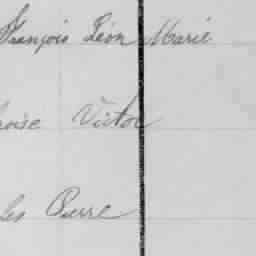 François Léon Marie
Victor
Pierre